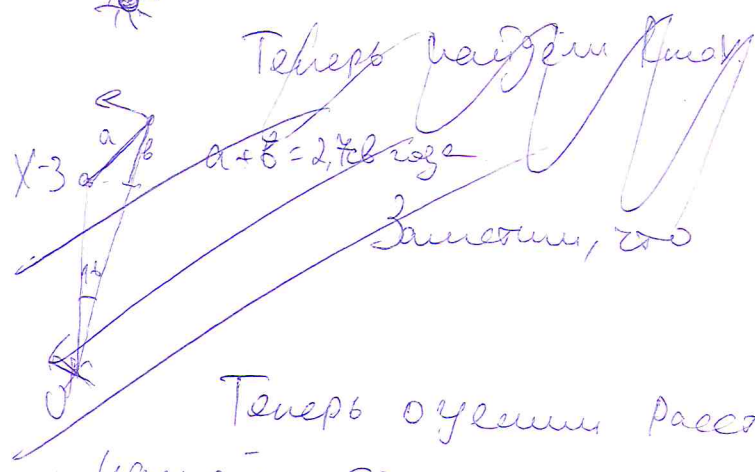 Теперь найдём Rmax
a
b
X-3
a+b = 2,7св года
Заметим, что
Теперь оценим расст